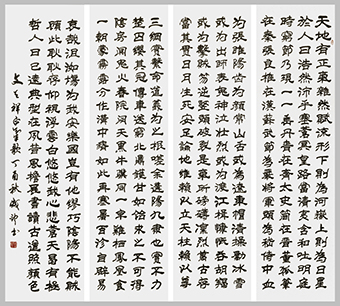 天地有正氣雜然賦流形下則為河嶽上則為日星
於人曰浩然沛乎塞蒼冥皇路當清夷含和吐明庭
時窮節乃見一一垂丹青在齊太史簡在晉董狐筆
在秦張良椎在漢蘇武節為嚴將軍頭為嵇侍中血
為張睢陽齒為顏常山舌或為遼東帽清操厲冰雪
或為出師表鬼神泣壯烈或為渡江楫慷慨吞胡羯
或為擊賊笏逆豎頭破裂是氣所磅礴凜烈萬古存
當其貫日月生死安足論地維賴以立天柱賴以尊
三綱實繫命道義為之根嗟余遘陽九隸也實不力
楚囚纓其冠傳車送窮北鼎鑊甘如飴求之不可得
陰房闃鬼火春院閟天黑牛驥同一皁雞棲鳳凰食
一朝蒙霧露分作溝中瘠如此再寒暑百沴自辟易
哀哉沮洳場為我安樂國豈有他繆巧陰陽不能賊
顧此耿耿存仰視浮雲白悠悠我心悲蒼天曷有極
哲人日已遠典型在夙昔風簷展書讀古道照顏色
文天祥正氣歌丁酉秋